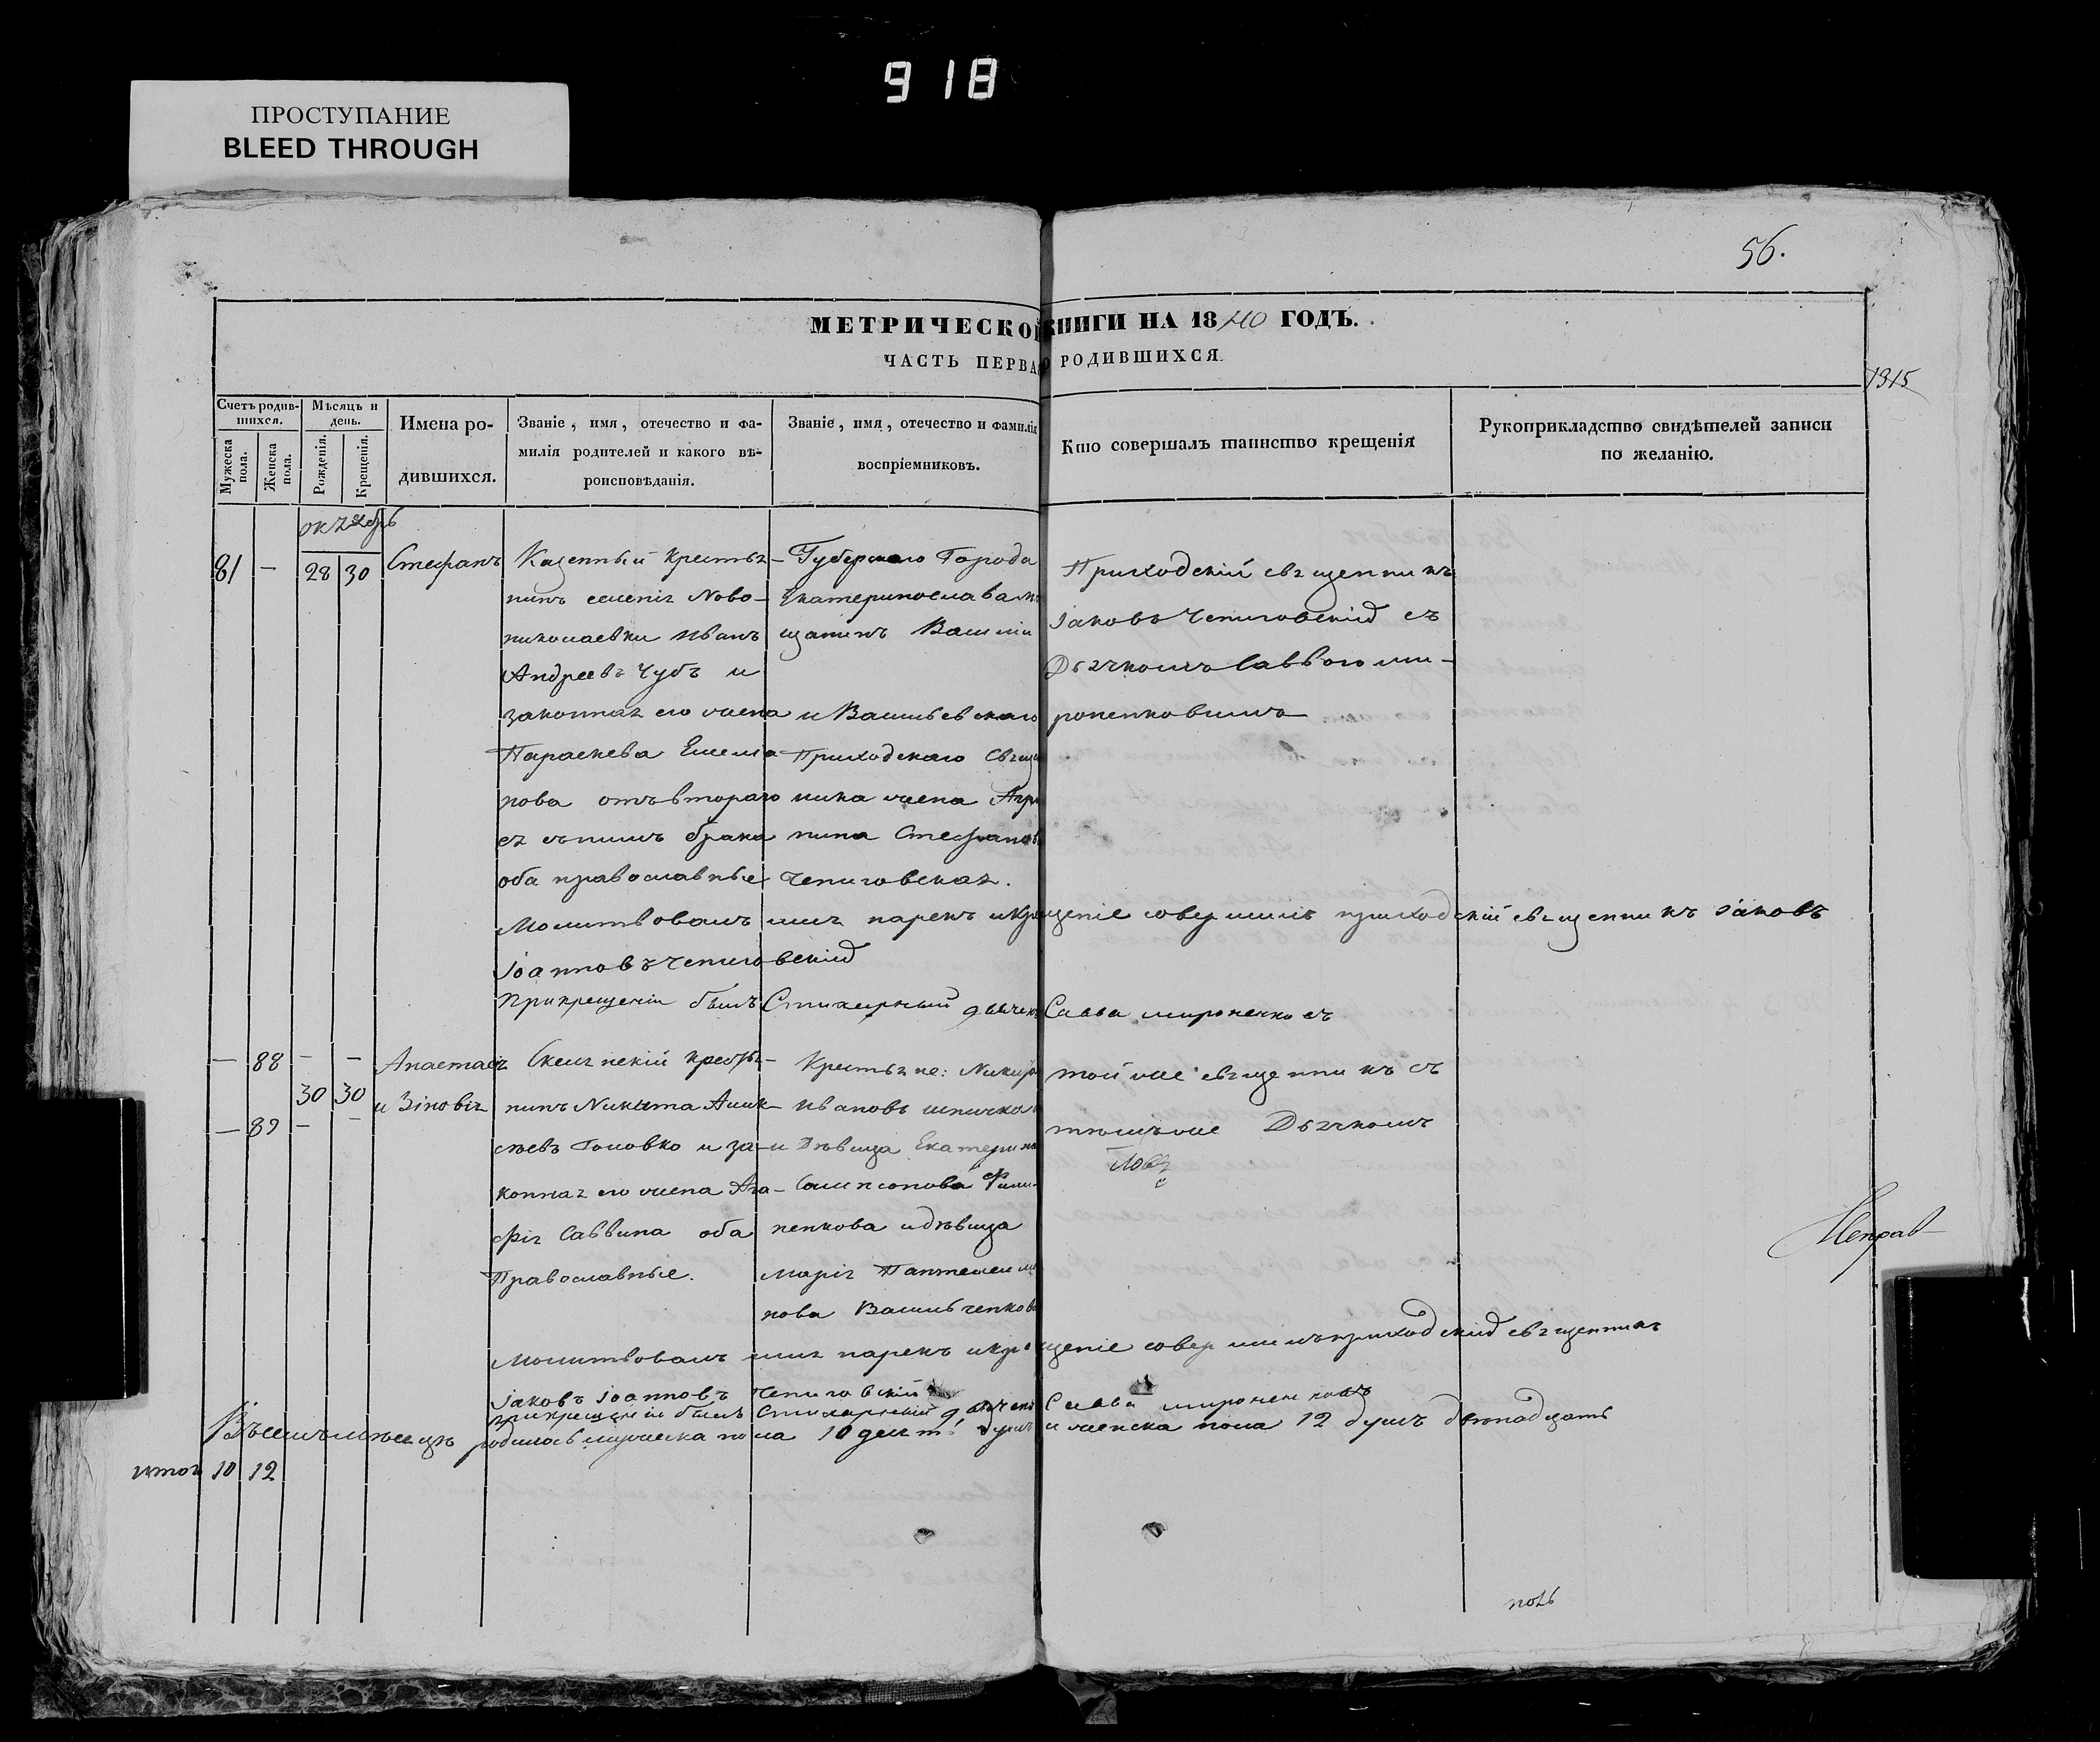 918
ПРОСТУПАНИЕ
BLEED THROUGH
56.
МЕТРИЧЕСКОЙ КНИГИ НА 1840 ГОДЪ.
ЧАСТЬ ПЕРВАЯ О РОДИВШИХСЯ.
1315
Счетъ родившихся.
Мужеска пола.
Женска пола.
Мѣсяцъ и день.
Рожденія.
Крещенія.
Имена родившихся.
Званіе, имя, отечество и фамилія родителей и какого вѣроисповѣданія.
Званіе, имя, отечество и фамилія воспріемниковъ.
Кто совершалъ таинство крещенія
Рукоприкладство свидѣтелей записи по желанію.
октябрь
81 — 28 30 Стефанъ
Казенный крестья-
нинъ селенія Ново-
николаевки Иванъ
Андреевъ Чубъ и
законная его жена
Параскева Емелиа
нова отъ втораго
съ нимъ брака
оба православные
Губернскаго Города
Екатеринослава мѣ
щанинъ Василій
и Васильевскаго
Приходскаго Свяще
ника жена Агри
пина Стефанов
Чепиговская.
Приходскій священникъ
Іаковъ Чепиговскій съ
Дьячкомъ Саввою ми-
роненковымъ
Молитвовалъ имя нарекъ и крещеніе совершилъ приходскій священникъ Іаковъ
Іоанновъ Чепиговскій
При крещеніи былъ Стихарный дьячекъ Савва мироненковъ
— 88 — —
30 30
— 89 — —
Анастасія
и Зиновія
нинъ Никита Алик-
сѣевъ Головко и за-
конная его жена Ага-
фія Саввина оба
Православные.
Крестьяне: Никиф
Ивановъ
и Дѣвица Екатерина
Сампсонова Фили-
пенкова и дѣвица
Марія Пантелеимо
нова Васильченкова
той же священникъ съ
тѣмъ же Дьячкомъ
Молитвовалъ имя нарекъ и крещеніе совершилъ приходскій священникъ
Іаковъ Іоанновъ Чепиговскій
при крещеніи былъ Стихарный дьячекъ Савва мироненковъ
Въ семъ мѣсяцѣ родилось мужеска пола 10 душъ и женска пола 12 душъ двѣнадцать
итого 10 12